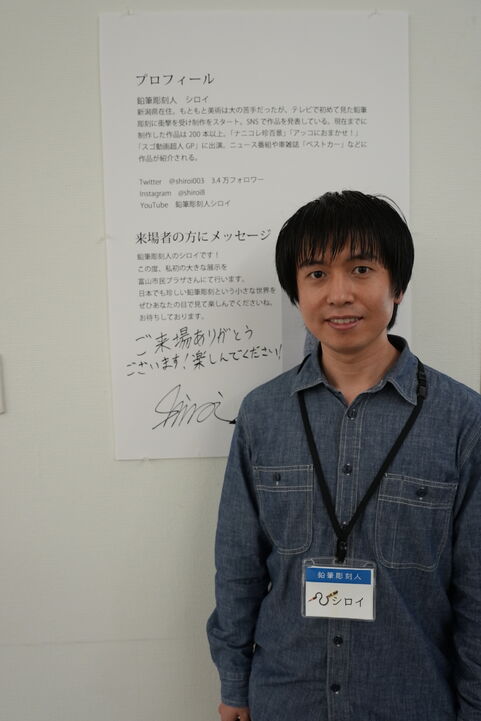 プロフィール
鉛筆彫刻人　シロイ
新潟県在住。もともと美術は大の苦手だったが、テレビで初めて見た鉛筆
彫刻に衝撃を受け制作をスタート。SNSで作品を発表している。現在までに
制作した作品は200本以上。「ナニコレ珍百景」「アッコにおまかせ！」
「スゴ動画超人GP」に出演。ニュース番組や車雑誌「ベストカー」などに
作品が紹介される。
Twitter　@shiroi003　3.4万フォロワー
Instagram　@shiroi8
YouTube　鉛筆彫刻人シロイ
来場者の方にメッセージ
鉛筆彫刻人のシロイです！
この度、私初の大きな展示を
富山市民プラザさんにて行います。
日本でも珍しい鉛筆彫刻という小さな世界を
ぜひあなたの目で見て楽しんでくださいね。
お待ちしております。
ご来場ありがとう
ございます！楽しんでください！
Shiroi
鉛筆彫刻人
シロイ